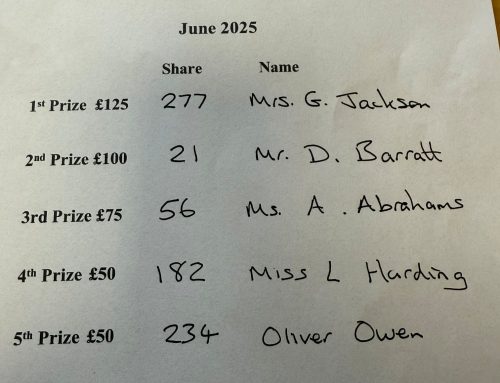 June 2025
Share Name
1st Prize £125 277 Mrs. G. Jackson
2nd Prize £100 21 Mr. D. Barratt
3rd Prize £75 56 Ms. A. Abrahams
4th Prize £50 182 Miss L Harding
5th Prize £50 234 Oliver Owen